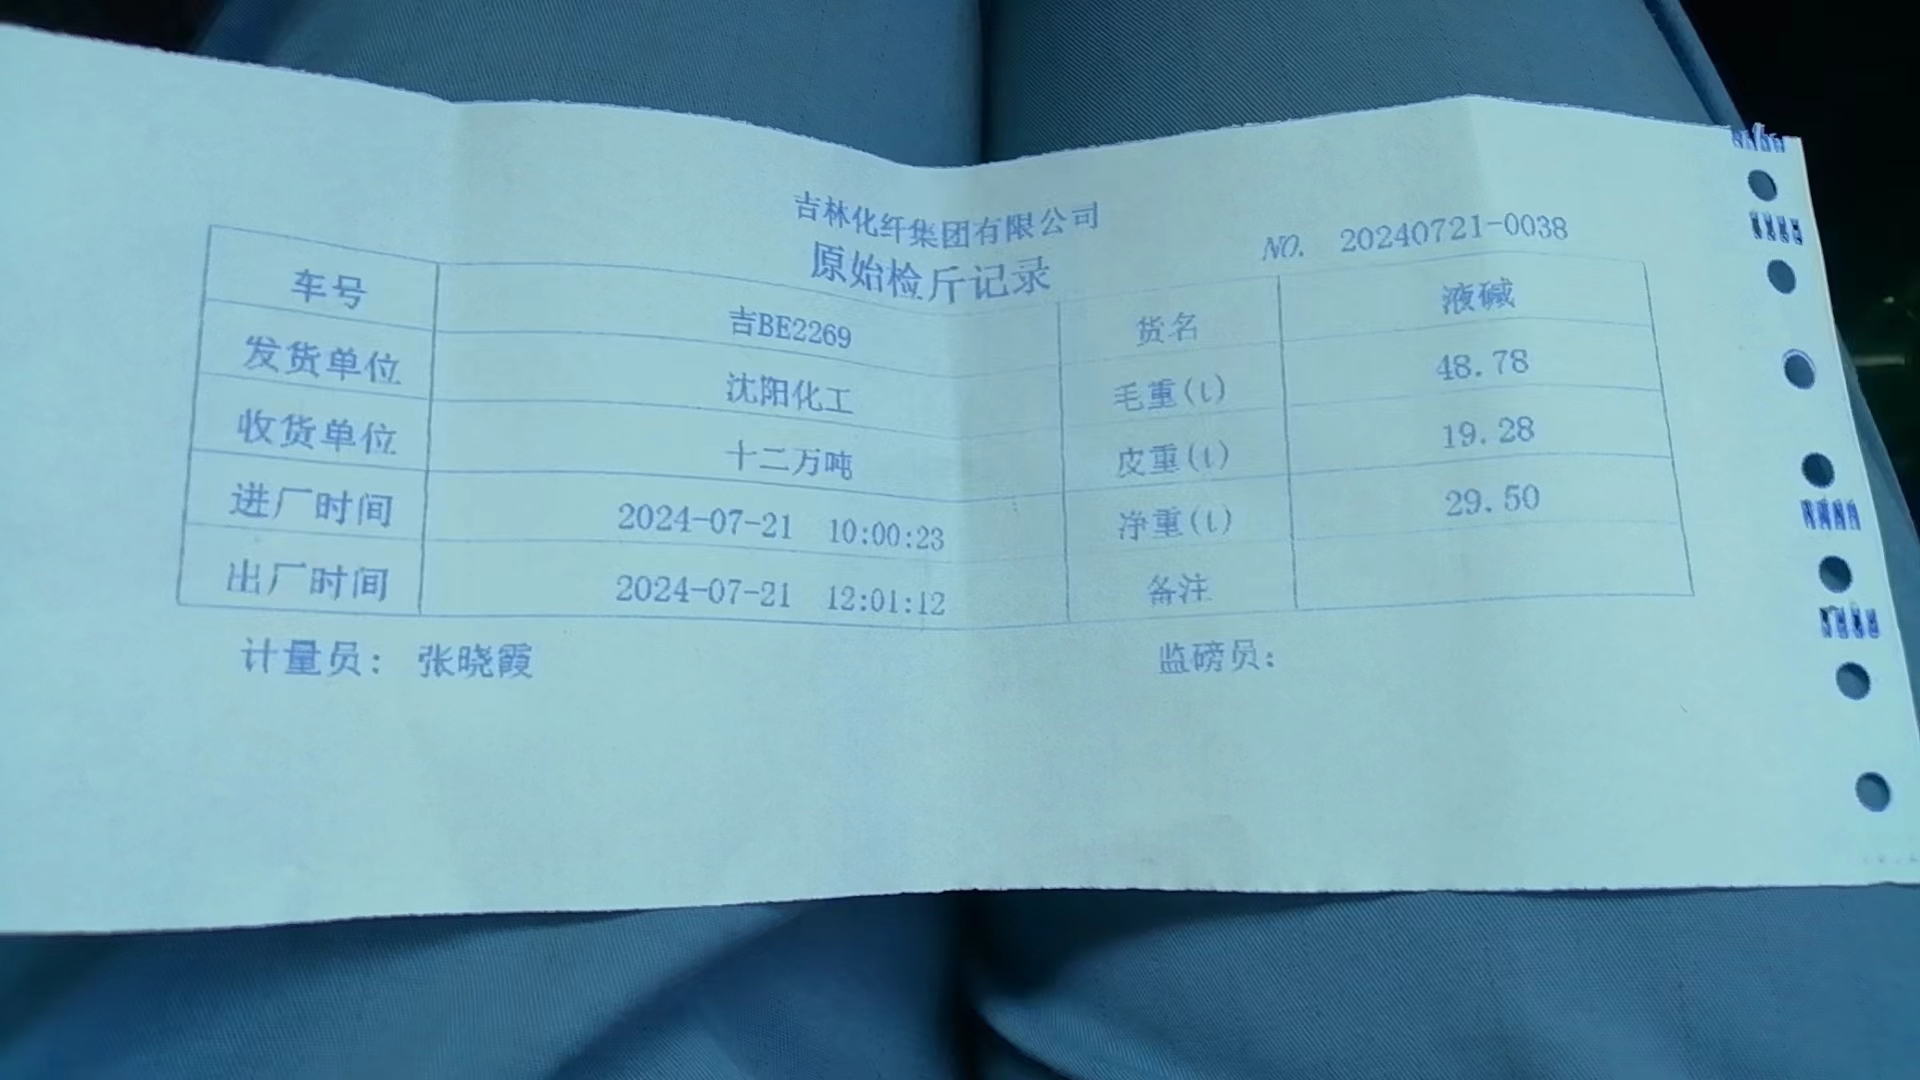 吉林化纤集团有限公司
原始检斤记录
NO. 20240721-0038
车号 吉BE2269 货名 液碱
发货单位 沈阳化工 毛重(t) 48.78
收货单位 十二万吨 皮重(t) 19.28
进厂时间 2024-07-21 10:00:23 净重(t) 29.50
出厂时间 2024-07-21 12:01:12 备注
计量员: 张晓霞 监磅员: